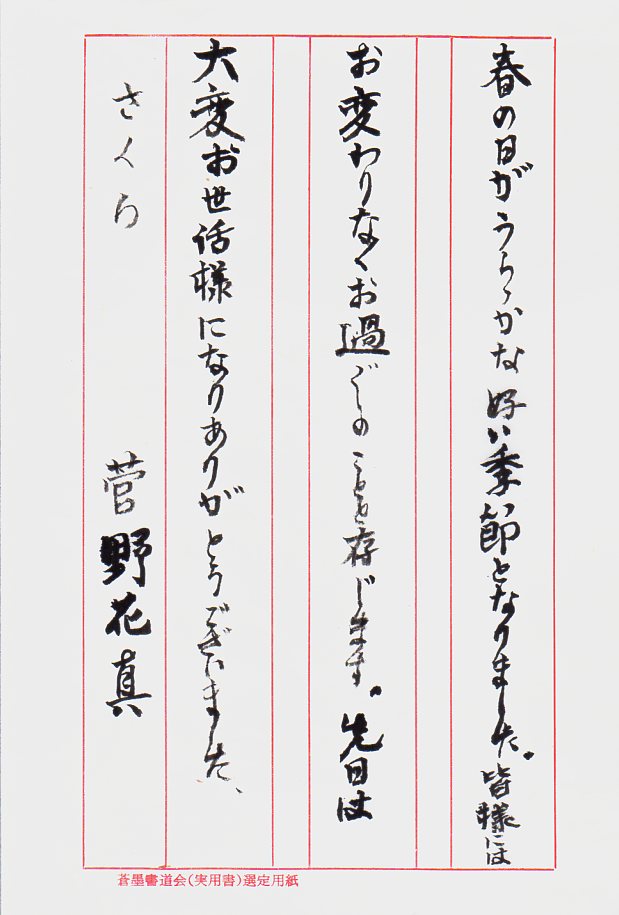 春の日がうらゝかな好い季節となりました。皆様には
お変わりなくお過ごしのことと存じます。先日は
大変お世話様になりありがとうございました、
さくら 菅野花真
蒼墨書道会(実用書)選定用紙